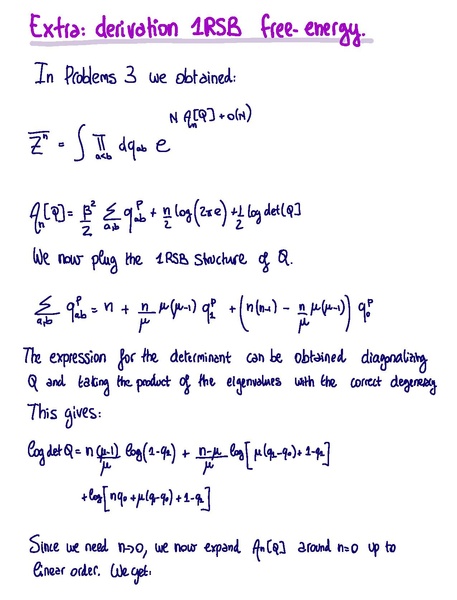 Extra: derivation 1RSB free-energy.
In Problems 3 we obtained:
\overline{Z^n} = ∫ ∏_{a<b} dq_{ab} e^{N A_n[Q] + o(N)}
A_n[Q] = β²/2 ∑_{a,b} q_{ab}^p + n/2 log(2πe) + 1/2 log det[Q]
We now plug the 1RSB structure of Q.
∑_{a,b} q_{ab}^p = n + n/μ μ(μ-1) q_1^p + (n(n-1) - n/μ μ(μ-1)) q_0^p
The expression for the determinant can be obtained diagonalizing
Q and taking the product of the eigenvalues with the correct degeneracy
This gives:
log det Q = n (μ-1)/μ log(1-q_1) + (n-μ)/μ log[μ(q_1-q_0)+1-q_1]
+ log[nq_0+μ(q_1-q_0)+1-q_1]
Since we need n→0, we now expand A_n[Q] around n=0 up to
linear order. We get: